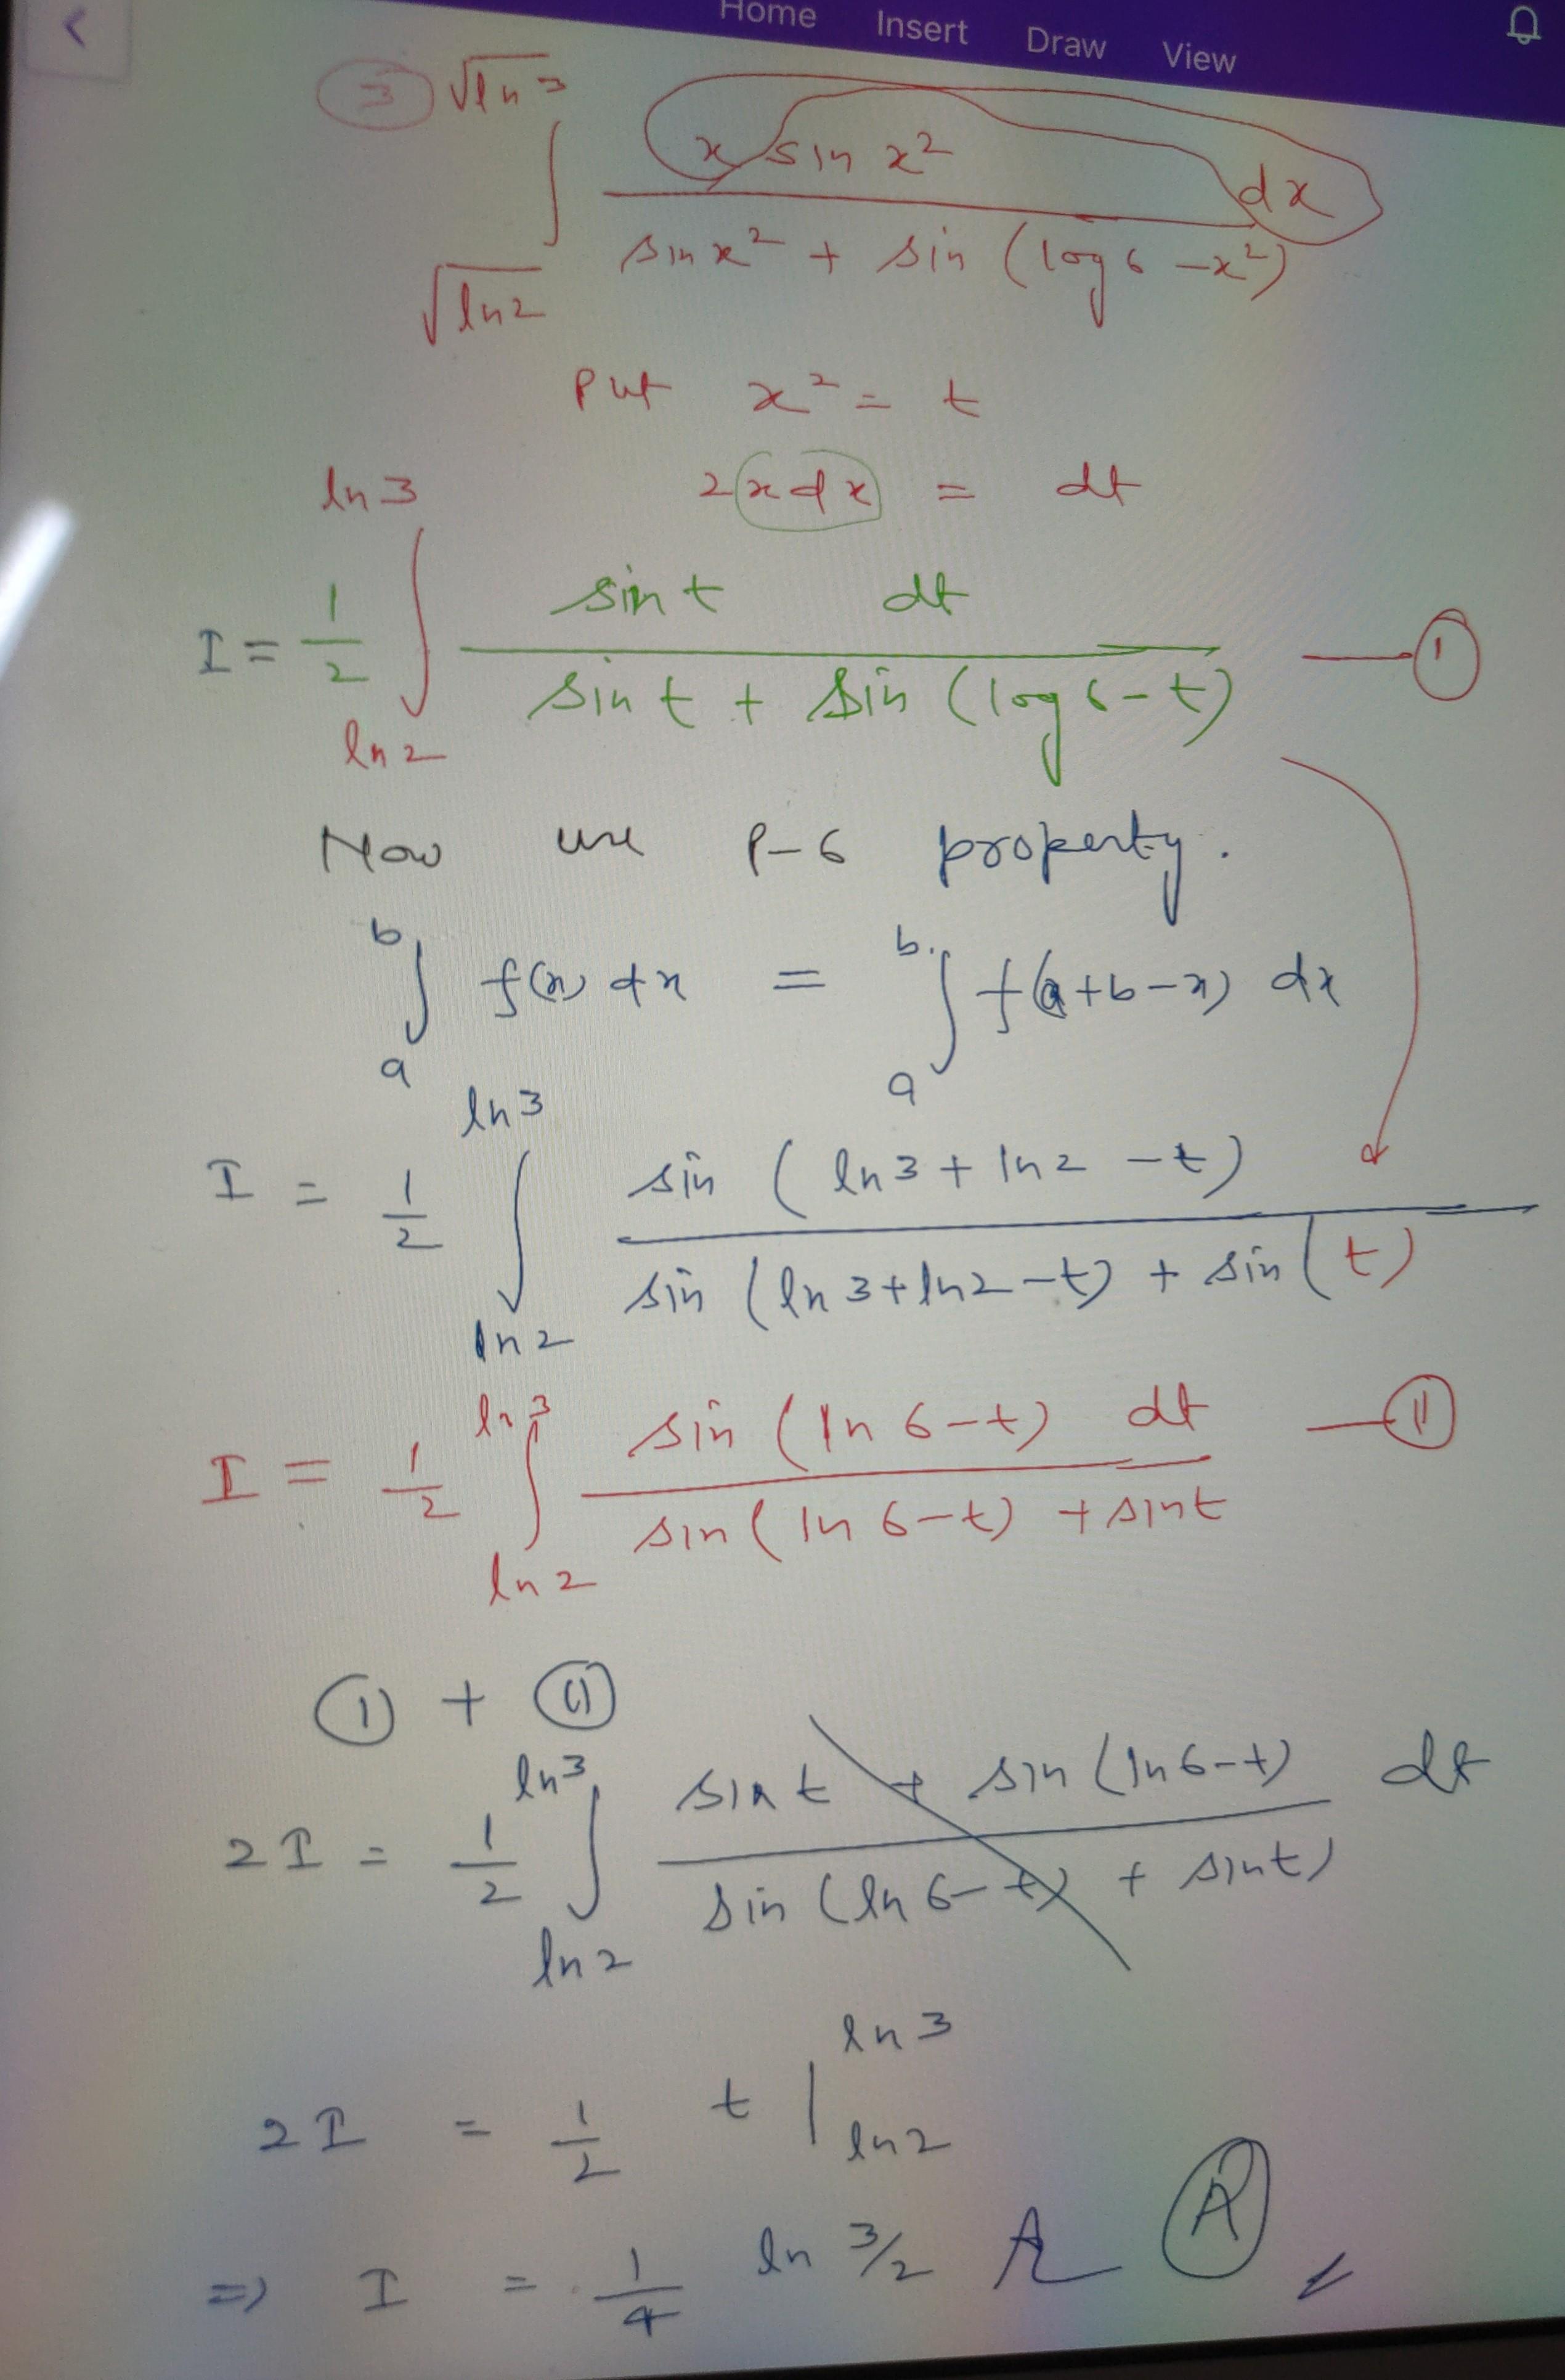 Home Insert Draw View
③ ∫_{√ln2}^{√ln3} x sin x² dx / sin x² + sin (log 6 - x²)
Put x² = t
2xdx = dt
I = 1/2 ∫_{ln 2}^{ln 3} sin t dt / sin t + sin (log 6 - t) — ①
Now use P-6 property.
∫_a^b f(x) dx = ∫_a^b f(a+b-x) dx
I = 1/2 ∫_{ln 2}^{ln 3} sin (ln 3 + ln 2 - t) / sin (ln 3 + ln 2 - t) + sin (t)
I = 1/2 ∫_{ln 2}^{ln 3} sin (ln 6 - t) dt / sin (ln 6 - t) + sin t — ⑪
① + ⑪
2I = 1/2 ∫_{ln 2}^{ln 3} sin t + sin (ln 6 - t) / sin (ln 6 - t) + sin t) dt
2I = 1/2 t |_{ln 2}^{ln 3}
=> I = 1/4 ln 3/2 A Ⓐ